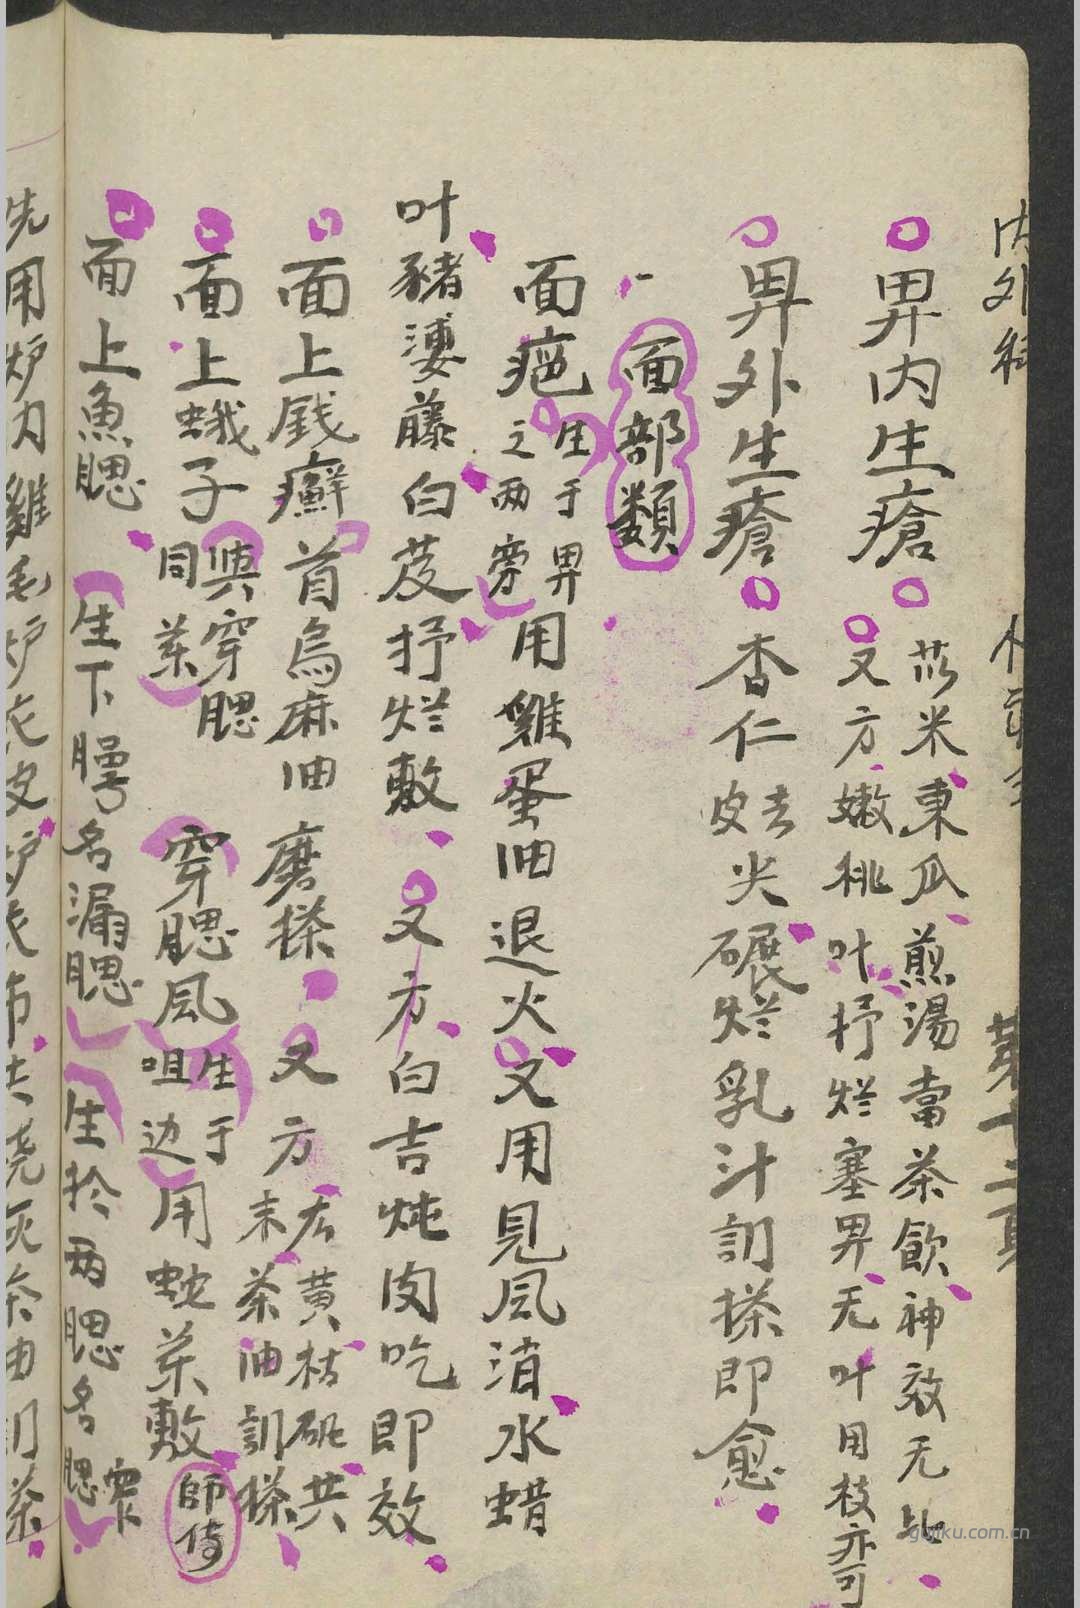 内外科
第十二頁
鼻内生瘡
苡米東瓜煎湯當茶飲神效无比
又方嫩桃叶抒烂塞鼻无叶用枝亦可
鼻外生瘡
杏仁去皮尖碾烂乳汁訓搽即愈
一面部類
面疤生于鼻之两旁用雞蛋油退火又用見風消水蜡
叶豬婆藤白芨抒烂敷又方白吉炖肉吃即效
面上錢癬首烏麻油磨搽又方
黄枯矾共末茶油訓搽
面上蛾子與穿腮同药
穿腮風生于咀边用蛇药敷師傅
面上魚腮生下腭名漏腮生於两腮名腮
先用炉力雞毛炉